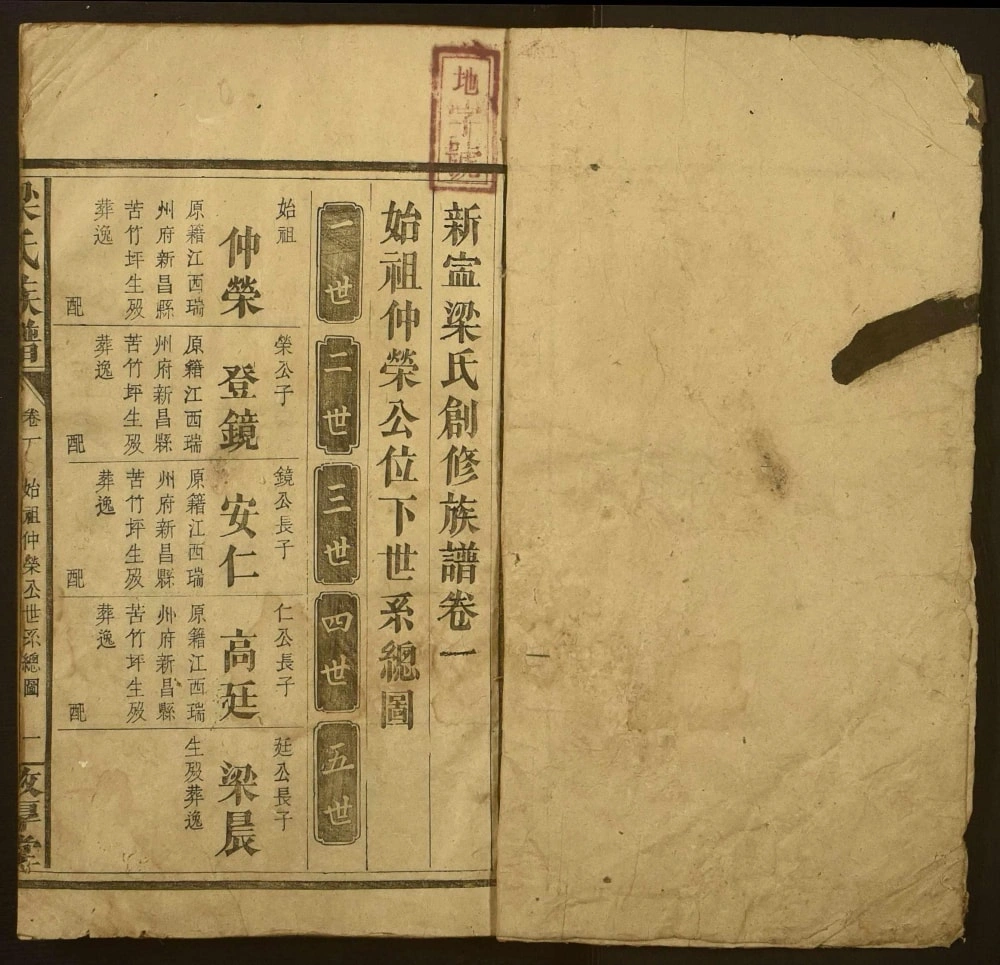 地字號
新寍梁氏創修族譜卷一
始祖仲榮公位下世系總圖
一世
二世
三世
四世
五世
始祖
仲榮
原籍江西瑞
州府新昌縣
苦竹坪生殁
葬逸
配
榮公子
登鏡
原籍江西瑞
州府新昌縣
苦竹坪生殁
葬逸
配
鏡公長子
安仁
原籍江西瑞
州府新昌縣
苦竹坪生殁
葬逸
配
仁公長子
高廷
原籍江西瑞
州府新昌縣
苦竹坪生殁
葬逸
配
廷公長子
梁晨
生殁葬逸
梁氏族譜
卷
始祖仲榮公世系總圖
一